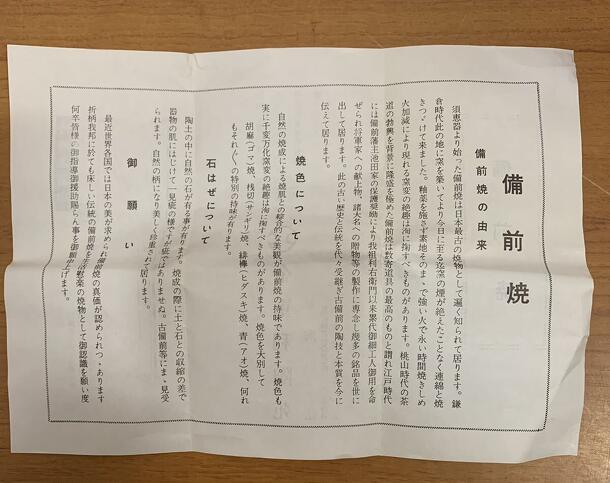 備前焼
備前焼の由来
須恵器より始った備前焼は日本最古の焼物として遍く知られて居ります。鎌
倉時代此の地に窯を築いてより今日に至る迄窯の煙が絶えたことなく連綿と焼
きつゞけて来ました。釉薬を施さず素地そのまゝで強い火で永い時間焼きしめ
火加減により現れる窯変の絶趣は洵に掬すべきものがあります。桃山時代の茶
道の勃興を背景に隆盛を極めた備前焼は数寄道具の最高のものと謂れ江戸時代
には備前藩主池田家の保護奨励により我祖利右衛門以来累代御細工人御用を命
ぜられ将軍家への献上物、諸大名への贈物等の製作に専念し幾多の銘品を世に
出して居ります。此の古い歴史と伝統を代々受継ぎ古備前の陶技と本質を今に
伝えて居ります。
焼色について
自然の焼成による焼肌との綜合的な美観が備前焼の持味であります。焼色も
実に千変万化窯変の絶趣は洵に掬すべきものがあります。焼色を大別して
胡麻(ゴマ)焼、桟切(サンギリ)焼、緋襷(ヒダスキ)焼、青(アオ)焼、何れ
もそれ〴〵の特別の持味が有ります。
石はぜについて
陶土の中に自然の石が有る事が有ります。焼成の際に土と石との収縮の差で
器物の肌にはじけて一見疵の様ですが疵ではありませぬ。古備前等にまゝ見受
られます。自然の柄になり美しく珍重されて居ります。
御願い
最近世界各国では日本の美が求められ備前焼の真価が認められつゝあります
折柄我邦に於ても床しい伝統の備前焼を生活慰楽の焼物として御認識を願い度
何卒皆様の御指導御援助賜らん事を御願申上げます。